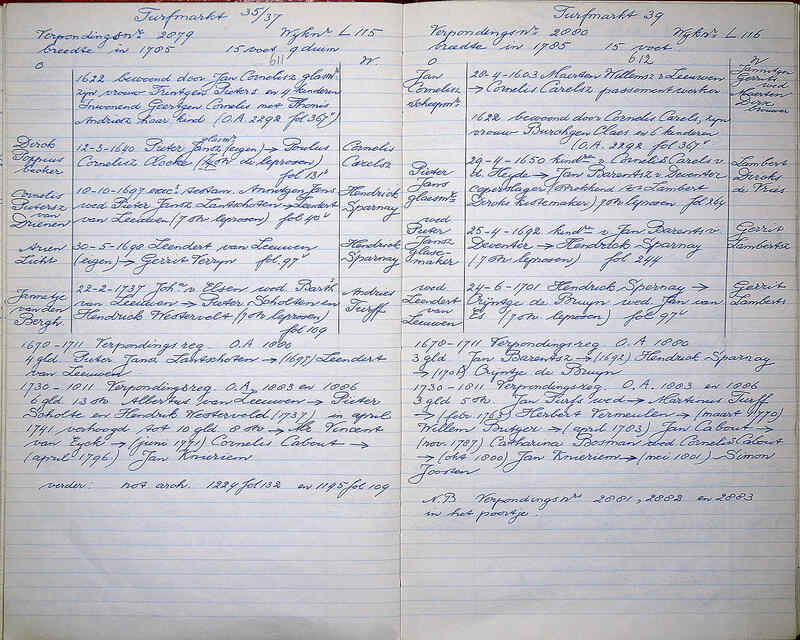 Turfmarkt 35/37
Verpondingsnr. 2079 Wyknr L 115
breedte in 1785 15 voet 9 duim
611
O W.
1622 bewoond door Jan Cornelisz glasmr.
zyn vrouw Trintgen Pieters en 4 kinderen
Inwonend Geertgen Cornelis met Thonis
Andriesz haar kind (O.A. 2292 fol 367v)
Dirck
Joppius
becker
12-3-1640 Pieter Jansz glasmr (eigen) → Paulus
Cornelisz Clocke (7 st. de leprosen)
fol 131v
Cornelis
Carelsz
Cornelis
Pietersz
van
Drienen
10-10-1697 execr. testam. Anntgen Jans
wed Pieter Jansz Lantschoten → Leendert
van Leeuwen (7 st. leprosen) fol 40v
Hendrick
Sparnay
Arien
Licht
30-5-1698 Leendert van Leeuwen
(eigen) → Gerrit Verryn fol. 97v
Hendrick
Sparnay
Jannetje
van den
Bergh
22-2-1737 Joh. v. Elsen wed Barth.
van Leeuwen → Pieter Scholten en
Hendrick Westervelt (7 st. leprosen)
fol 109
Andries
Turff
1670-1711 Verpondingsreg. O.A 1880
4 gld. Pieter Jansz Lantschoten → (1697) Leendert
van Leeuwen
1730-1811 Verpondingsreg. O.A. 1883 en 1886
6 gld 13 st. Albertus van Leeuwen → Pieter
Scholte en Hendrik Westerveld (1737) in april
1741 verhoogd tot 10 gld 8 st → Vincent
van Eyck → (juni 1791) Cornelis Cabout →
(april 1796) Jan Kmeriem
verder: not. arch. 1224 fol 132 en 1195 fol 109
Turfmarkt 39
Verpondingsnr. 2080 Wyknr L 116
breedte in 1785 15 voet
612
O W
Jan
Cornelisz
schepmr.
28-4-1603 Maerten Willemsz v Leeuwen
→ Cornelis Carelsz passementwerker
Janntgen
Gerrits
wed
Maerten
Dirx
brouwer
1622 bewoond door Cornelis Carels, zyn
vrouw Burchgen Claes en 6 kinderen
(O.A. 2292 fol 367v)
Pieter
Jans
glasmr.
29-4-1650 kindn v Cornelis Carels v.
d. Heyde → Jan Barentsz v Deventer
coperslager (strekkend tot Lambert
Dircks kostemaker) 7 st. leprosen fol 264
Lambert
Dircks
de Vries
wed
Pieter
Jansz
glase-
maker
25-4-1692 kindn v Jan Barents v.
Deventer → Hendrick Sparnay
(7 st. leprosen) fol 244
Gerrit
Lambertsz
wed
Leendert
van
Leeuwen
24-6-1701 Hendrick Spernay →
Crijntge de Bruyn wed Jan van
Es (7 st. leprosen) fol 97v
Gerrit
Lamberts
1670-1711 Verpondingsreg. O.A. 1880
3 gld Jan Barentsz → (1692) Hendrick Sparnay
→ (1701) Crijntge de Bruyn
1730-1811 Verpondingsreg. O.A. 1883 en 1886
3 gld 5 st. Jan Turfs wed → Martinus Turff
→ (febr. 1765) Herbert Vermeulen → (maart 1770)
Willem Putger → (april 1783) Jan Cabout →
(nov. 1787) Catharina Bosman wed Cornelis Cabout
→ (okt 1800) Jan Kmeriem → (mei 1801) Simon
Joosten
N.B Verpondingsnrs 2881, 2882 en 2883
in het poortje.